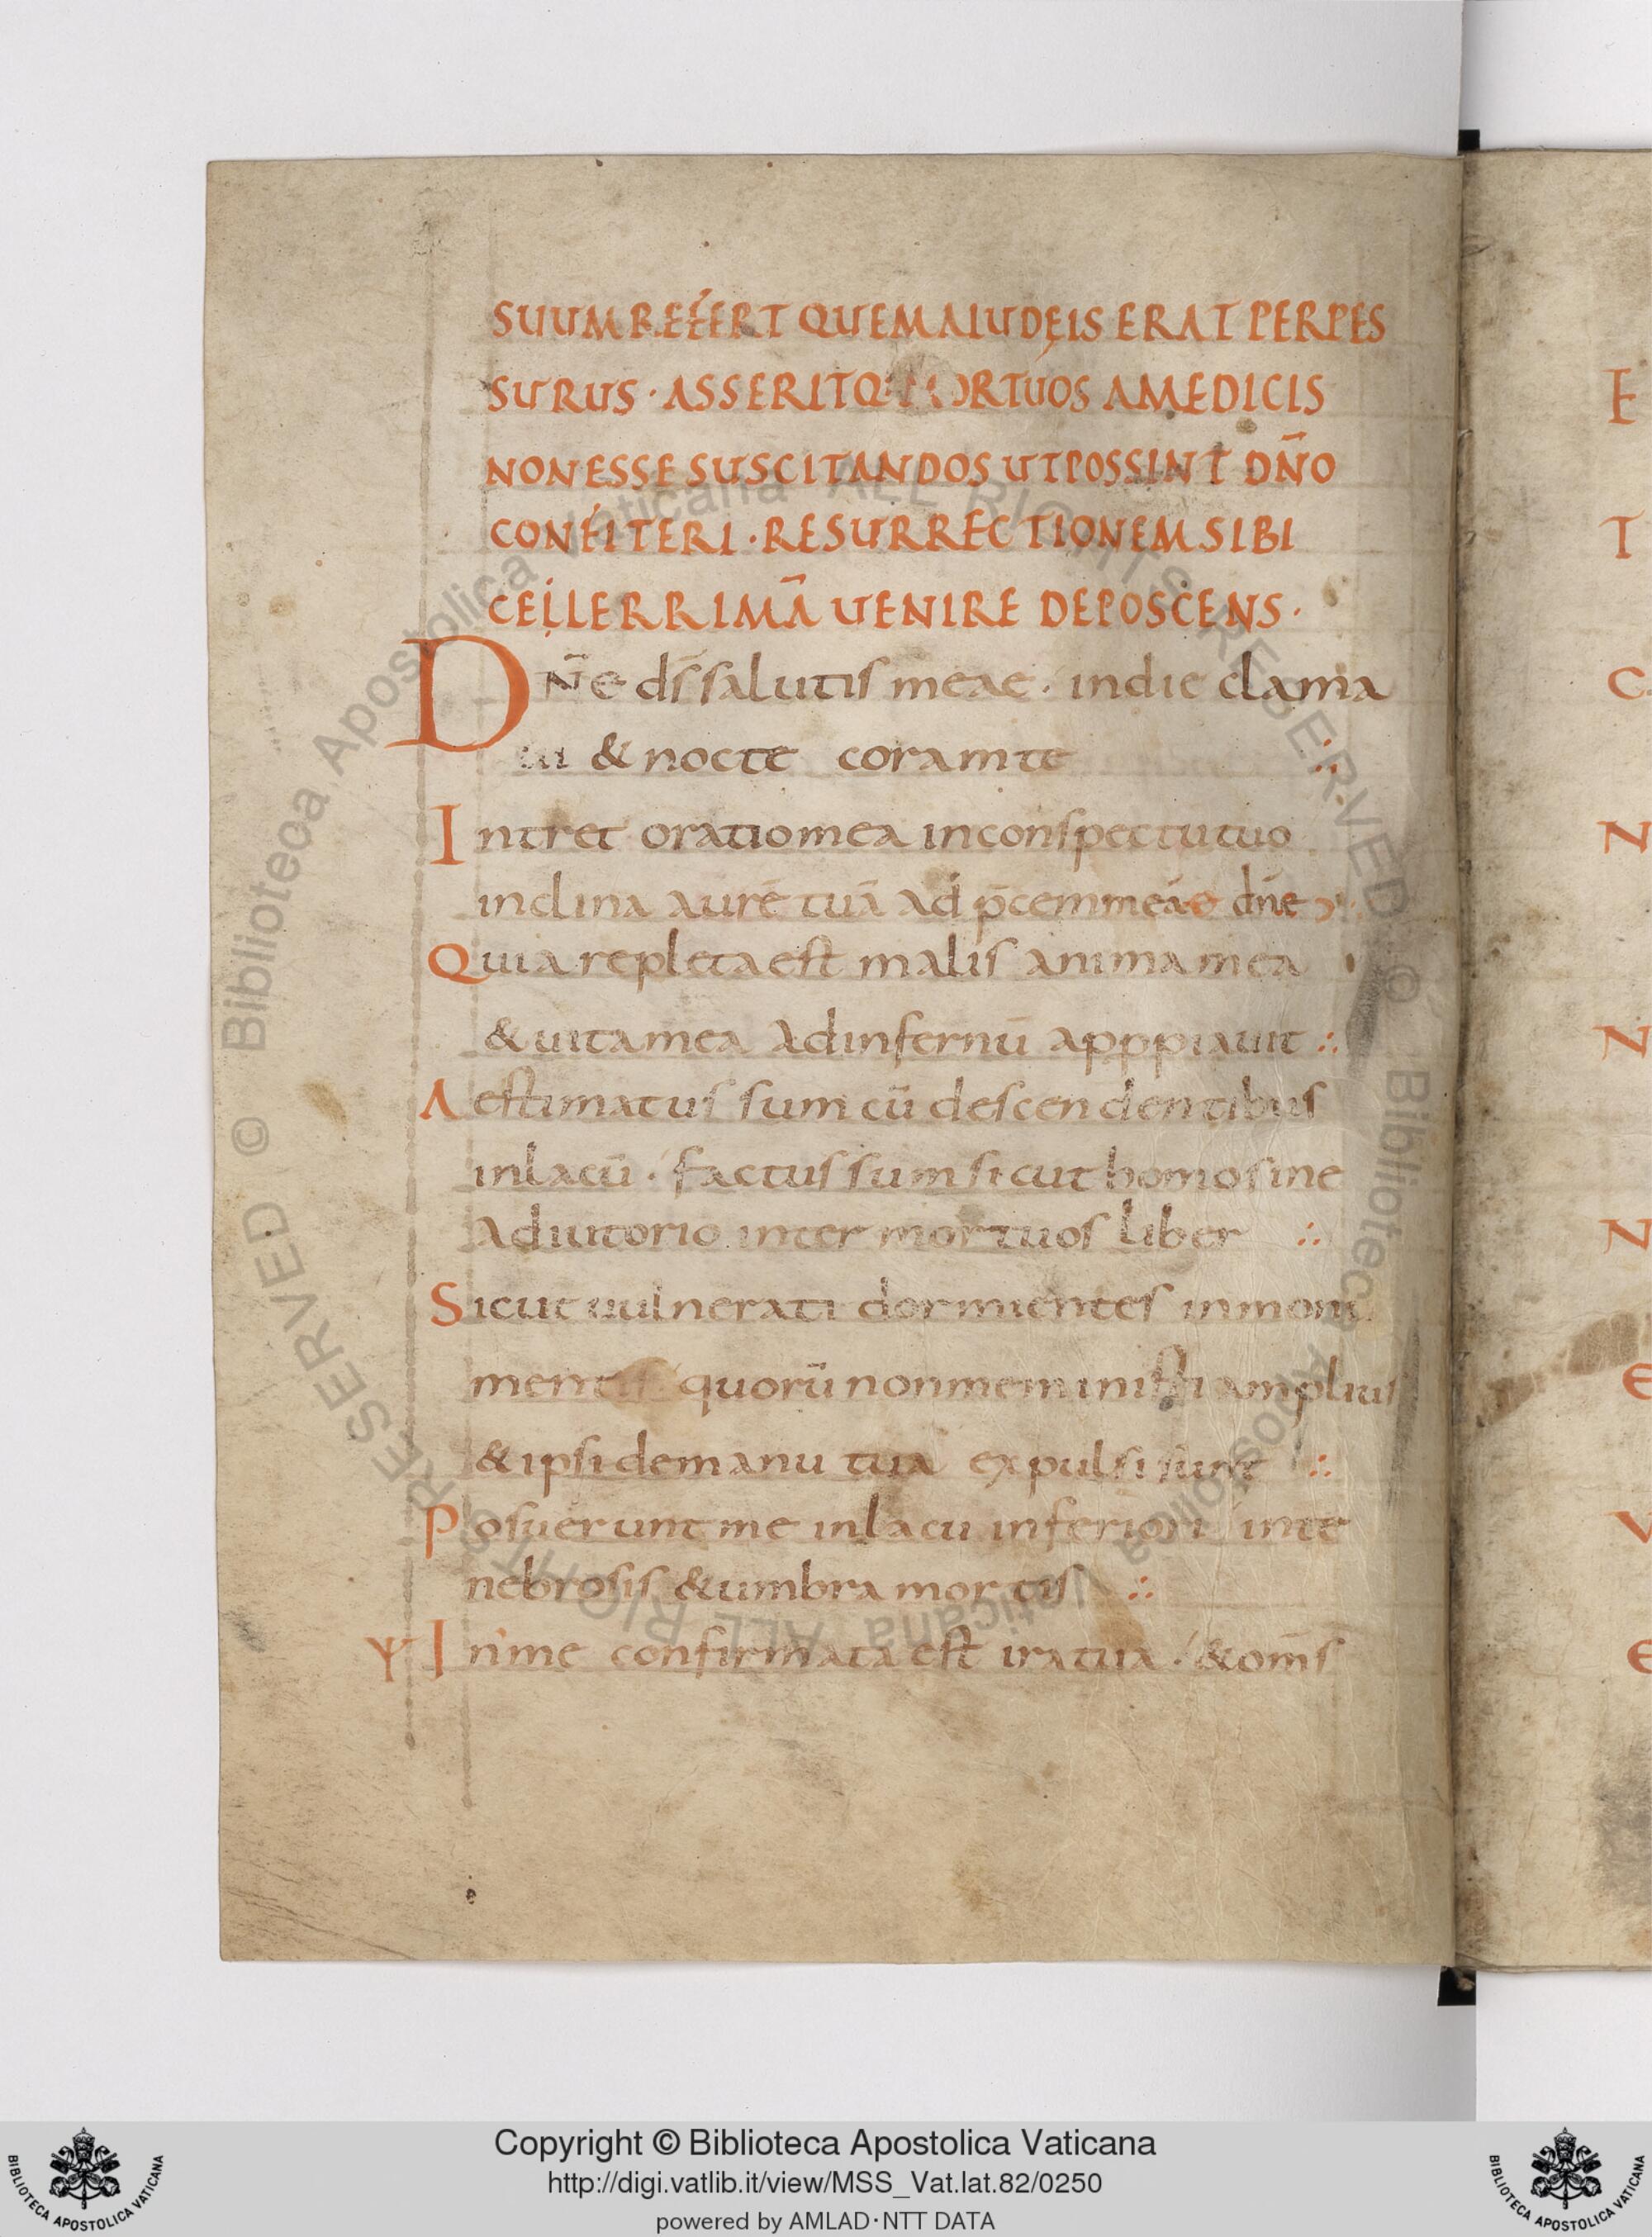 SUUM REFERT QUEM A IUDĘIS ERAT PERPES
SURUS · ASSERIT Q MORTUOS A MEDICIS
NON ESSE SUSCITANDOS UT POSSINT DN̄O
CONFITERI · RESURRECTIONEM SIBI
CELLERRIMĀ UENIRE DEPOSCENS ·
DN̄e ds̄ salutis meae · in die clama
ui & nocte coram te ∴
Intret oratio mea in conspectu tuo
inclina aurē tuā ad p̄cem meā dn̄e
Quia repleta est malis anima mea
& uita mea ad infernū appropiauit ∴
Aestimatus sum cū descendentibus
in lacū · factus sum sicut homo sine
adiutorio inter mortuos liber ∴
Sicut uulnerati dormientes in moni
mentis quorū non meministi amplius
& ipsi de manu tua expulsi sunt ∴
Posuerunt me in lacu inferiori in te
nebrosis & umbra mortis ∴
In me confirmata est ira tua · & om̄s
E
T
C
N
N
N
E
V
E
© Biblioteca Apostolica Vaticana ALL RIGHTS RESERVED © Biblioteca Apostolica Vaticana ALL RIGHTS RESERVED
BIBLIOTECA APOSTOLICA VATICANA
Copyright © Biblioteca Apostolica Vaticana
http://digi.vatlib.it/view/MSS_Vat.lat.82/0250
powered by AMLAD·NTT DATA
BIBLIOTECA APOSTOLICA VATICANA